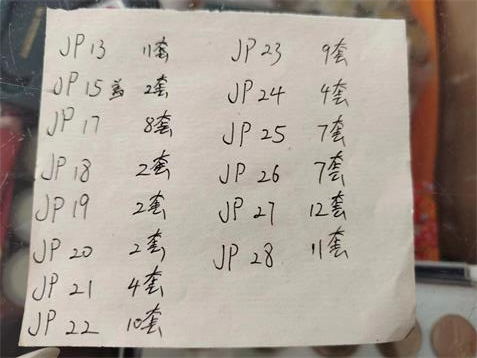 JP 13 11套
JP 15 盖 2套
JP 17 8套
JP 18 2套
JP 19 2套
JP 20 2套
JP 21 4套
JP 22 10套
JP 23 9套
JP 24 4套
JP 25 7套
JP 26 7套
JP 27 12套
JP 28 11套